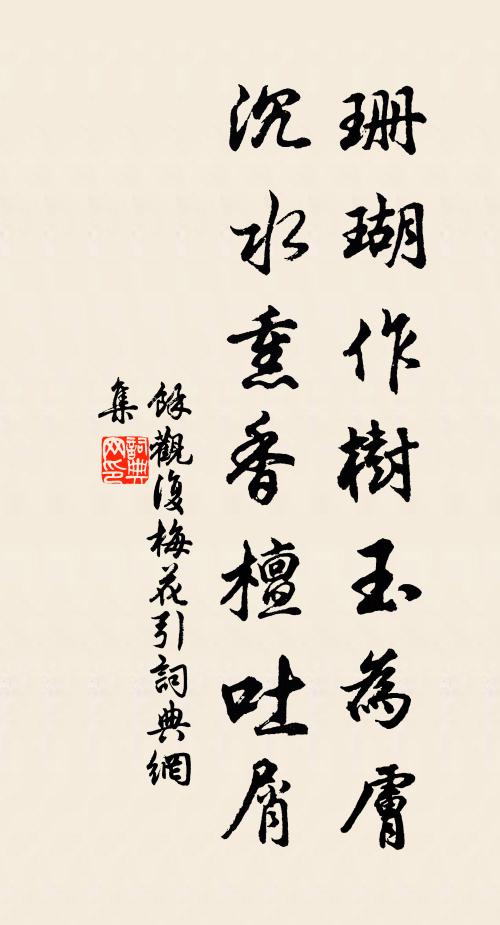 珊瑚作樹玉為膚
沉水熏香檀吐屑
餘觀復梅花引詞典網
集
詞典
網印